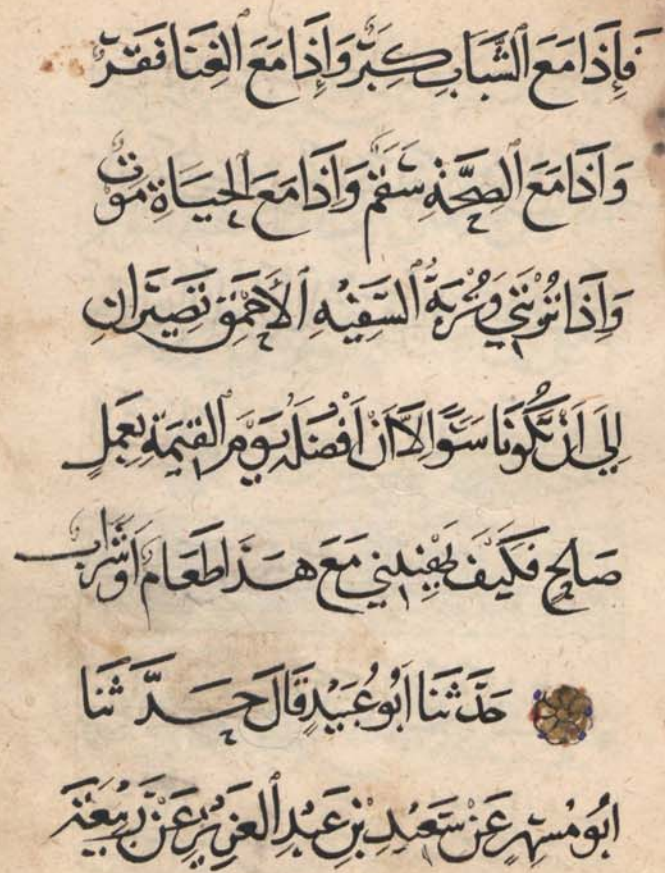 فَإِذَا مَعَ الشَّبَابِ كِبَرٌ وَإِذَا مَعَ الْغِنَا فَقْرٌ
وَإِذَا مَعَ الصِّحَّةِ سَقَمٌ وَإِذَا مَعَ الْحَيَاةِ مَوْتٌ
وَإِذَا تُرْبَتِي وَتُرْبَةُ السَّفِيْهِ الْأَحْمَقِ تَصِيْرَانِ
إِلَى أَنْ تَكُونَا سَوًا إِلَّا أَنْ أَفْضُلَهُ يَوْمَ الْقِيمَةِ بِعَمَلٍ
صَالِحٍ فَكَيْفَ يَهْنِينِي مَعَ هَذَا طَعَامٌ أَوْ شَرَابٌ
حَدَّثَنَا أَبُو عُبَيْدٍ قَالَ حَدَّثَنَا
أَبُو مُسْهِرٍ عَنْ سَعِيدِ بْنِ عَبْدِ الْعَزِيْزِ عَنْ رَبِيْعَةَ